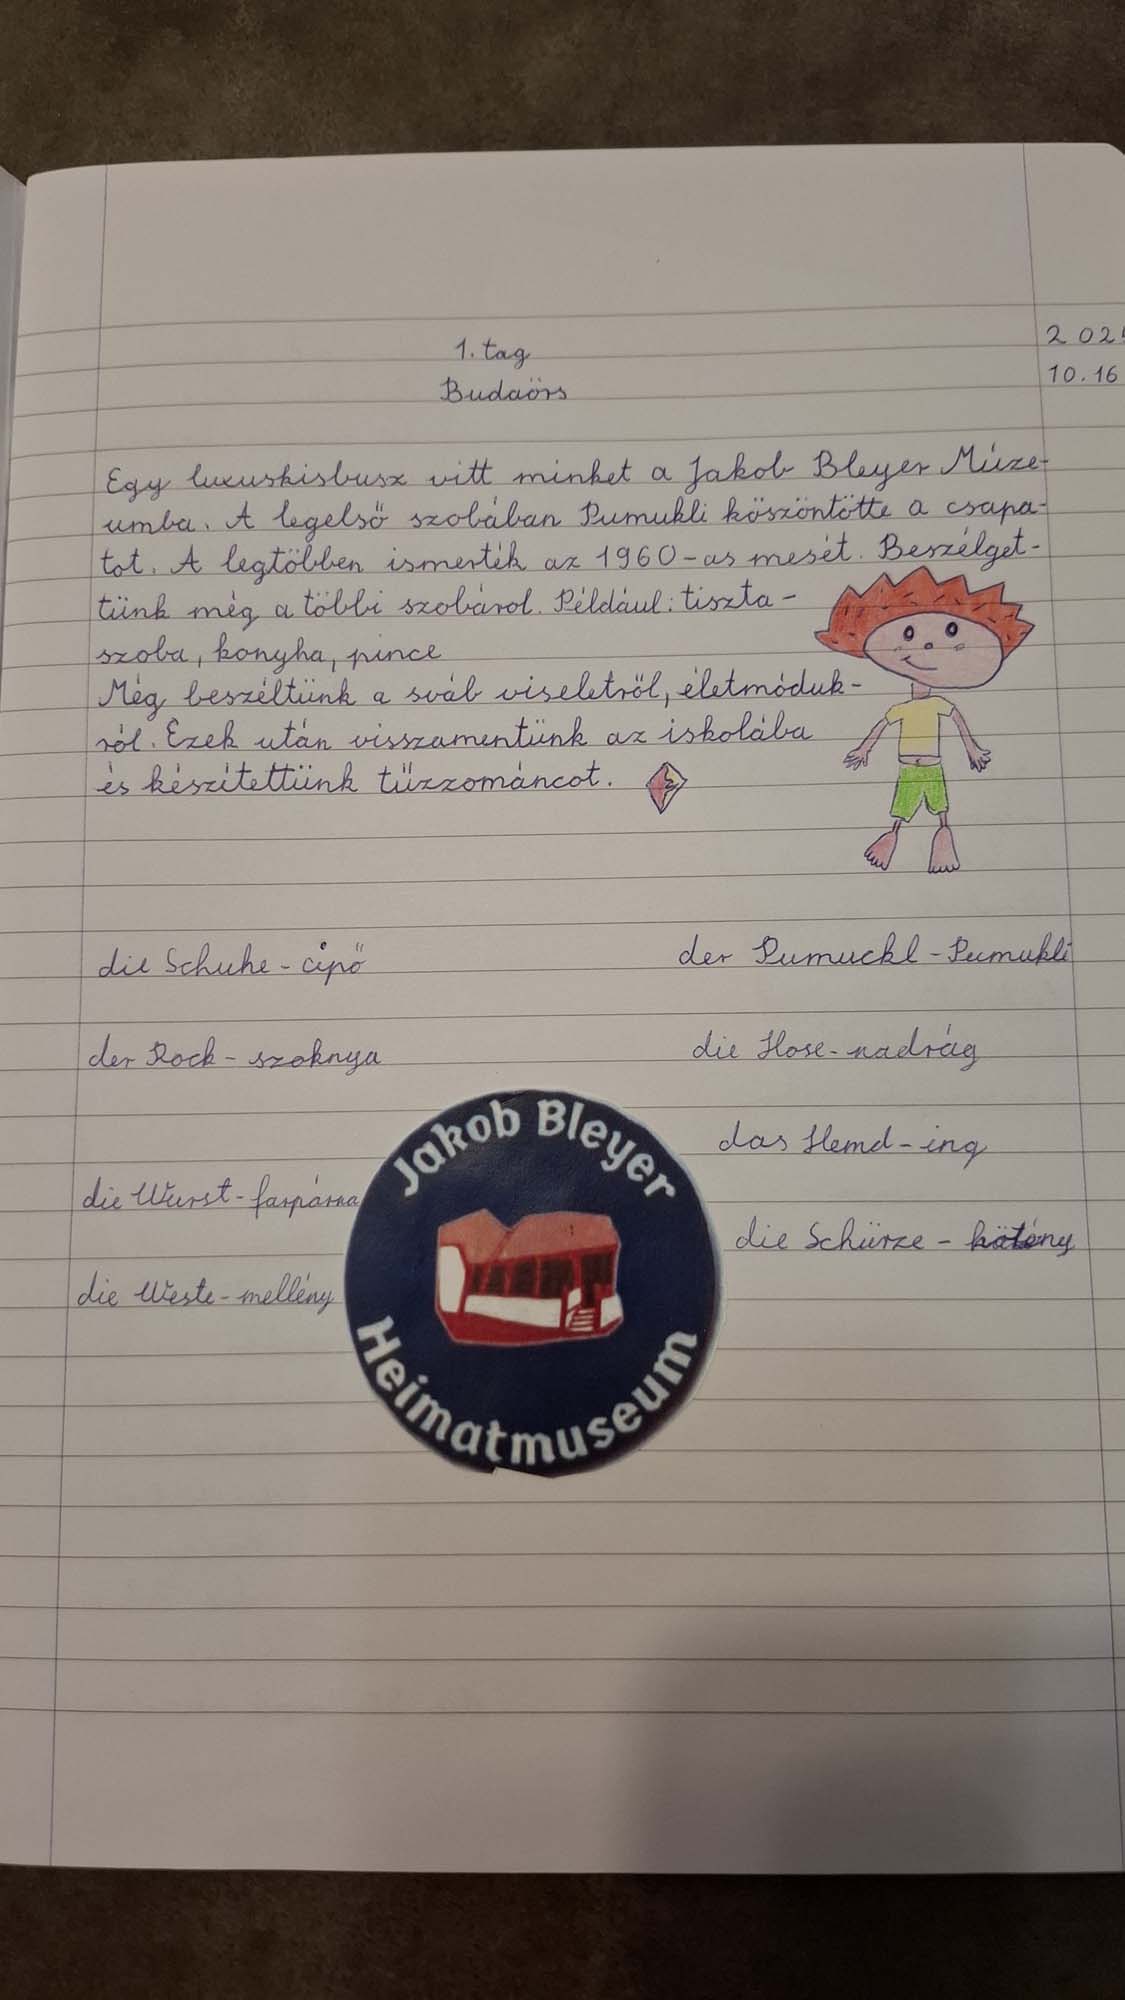 1. tag
Budaörs
202
10.16
Egy luxuskisbusz vitt minket a Jakob Bleyer Múze-
umba. A legelső szobában Pumukli köszöntötte a csapa-
tot. A legtöbben ismerték az 1960-as mesét. Beszélget-
tünk még a többi szobárol. Például: tiszta-
szoba, konyha, pince
Még beszéltünk a sváb viseletről, életmóduk-
ról. Ezek után visszamentünk az iskolába
és készítettünk tűzzománcot.
die Schuhe - cipő
der Pumuckl - Pumukli
der Rock - szoknya
die Hose - nadrág
das Hemd - ing
die Wurst - farpárna
die Schürze - kötény
die Weste - mellény
Jakob Bleyer
Heimatmuseum